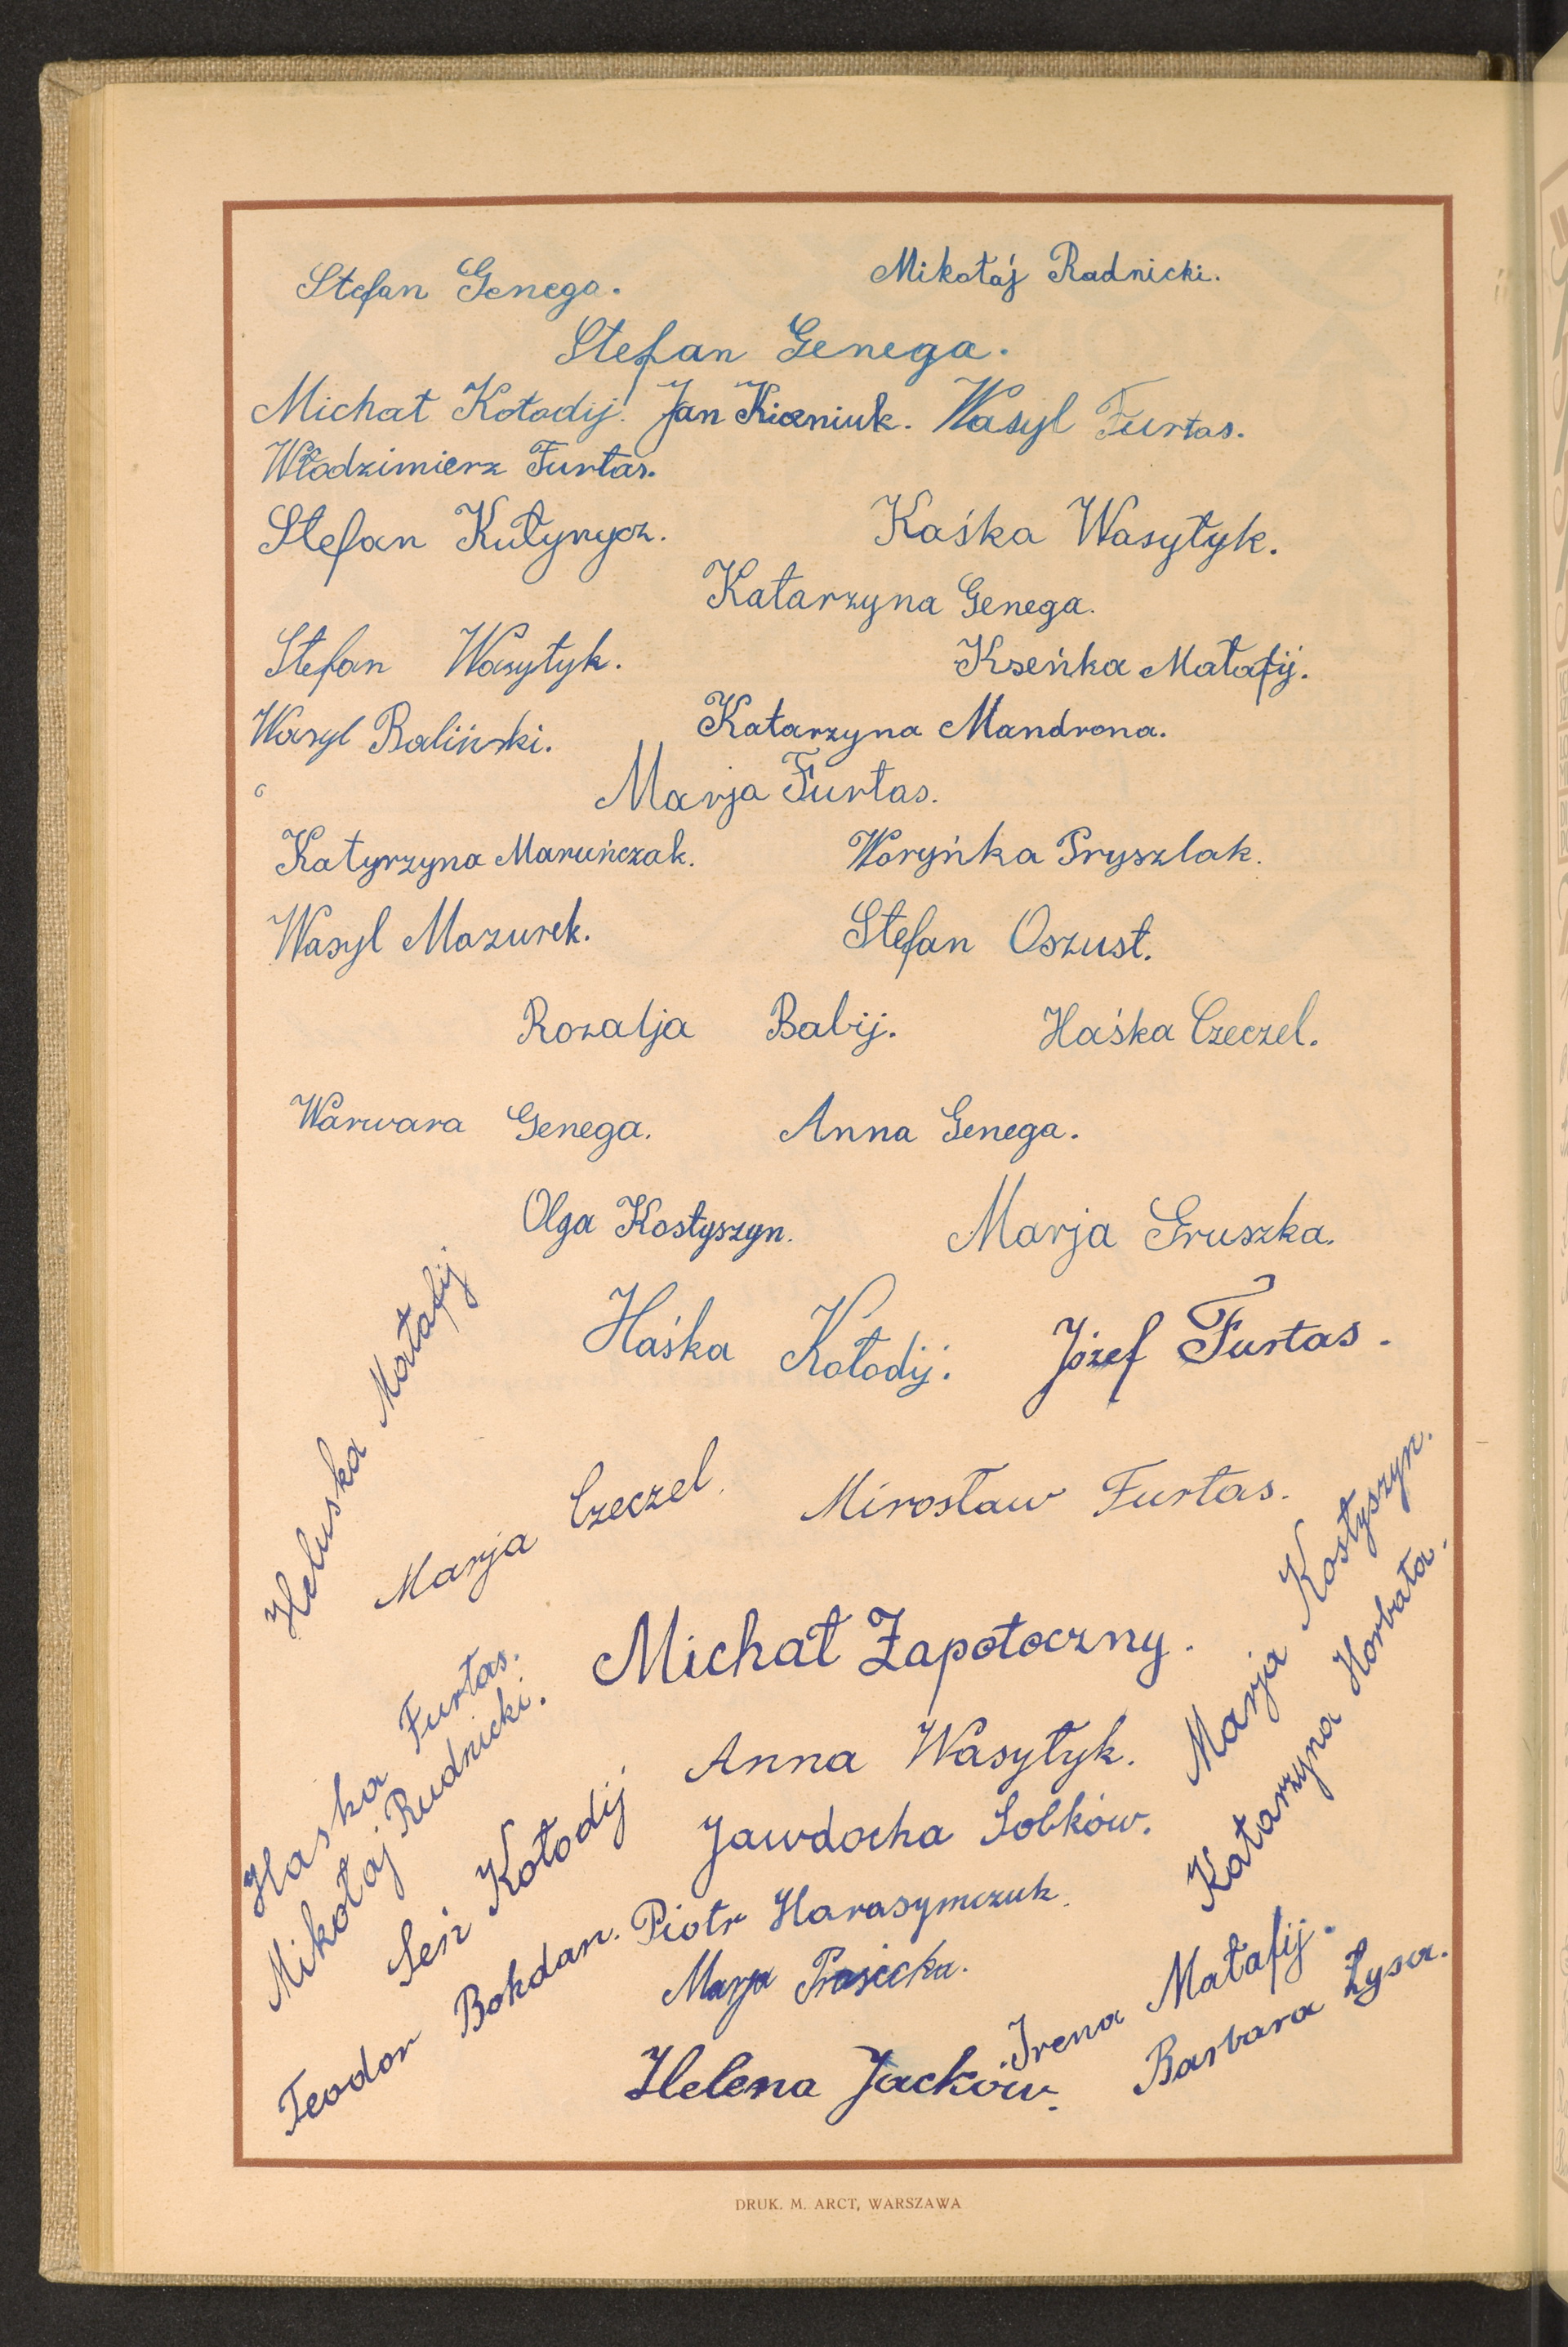 Stefan Genega. Mikołaj Radnicki.
Stefan Genega.
Michał Kołodij. Jan Kiceniuk. Wasyl Furtas.
Włodzimierz Furtas.
Stefan Kułynycz. Kaśka Wasyłyk.
Katarzyna Genega.
Stefan Wasyłyk. Kseńka Matafij.
Wasyl Baliński. Katarzyna Mandrona.
Marja Furtas.
Katyrzyna Maruńczak. Woryńka Pryszlak.
Wasyl Mazurek. Stefan Oszust.
Rozalja Babij. Haśka Czeczel.
Warwara Genega. Anna Genega.
Olga Kostyszyn. Marja Gruszka.
Heluska Matafij
Haśka Kołodij. Józef Furtas.
Marja Czeczel. Mirosław Furtas.
Michał Zapotoczny.
Marja Kostyszyn.
Katarzyna Horbata.
Haska Furtas.
Mikołaj Rudnicki.
Anna Wasyłyk.
Jawdocha Sobków.
Seń Kołodij
Piotr Harasymczuk.
Teodor Bohdan.
Marja
Irena Matafij.
Barbara Łysa.
Helena Jacków.
DRUK. M. ARCT, WARSZAWA